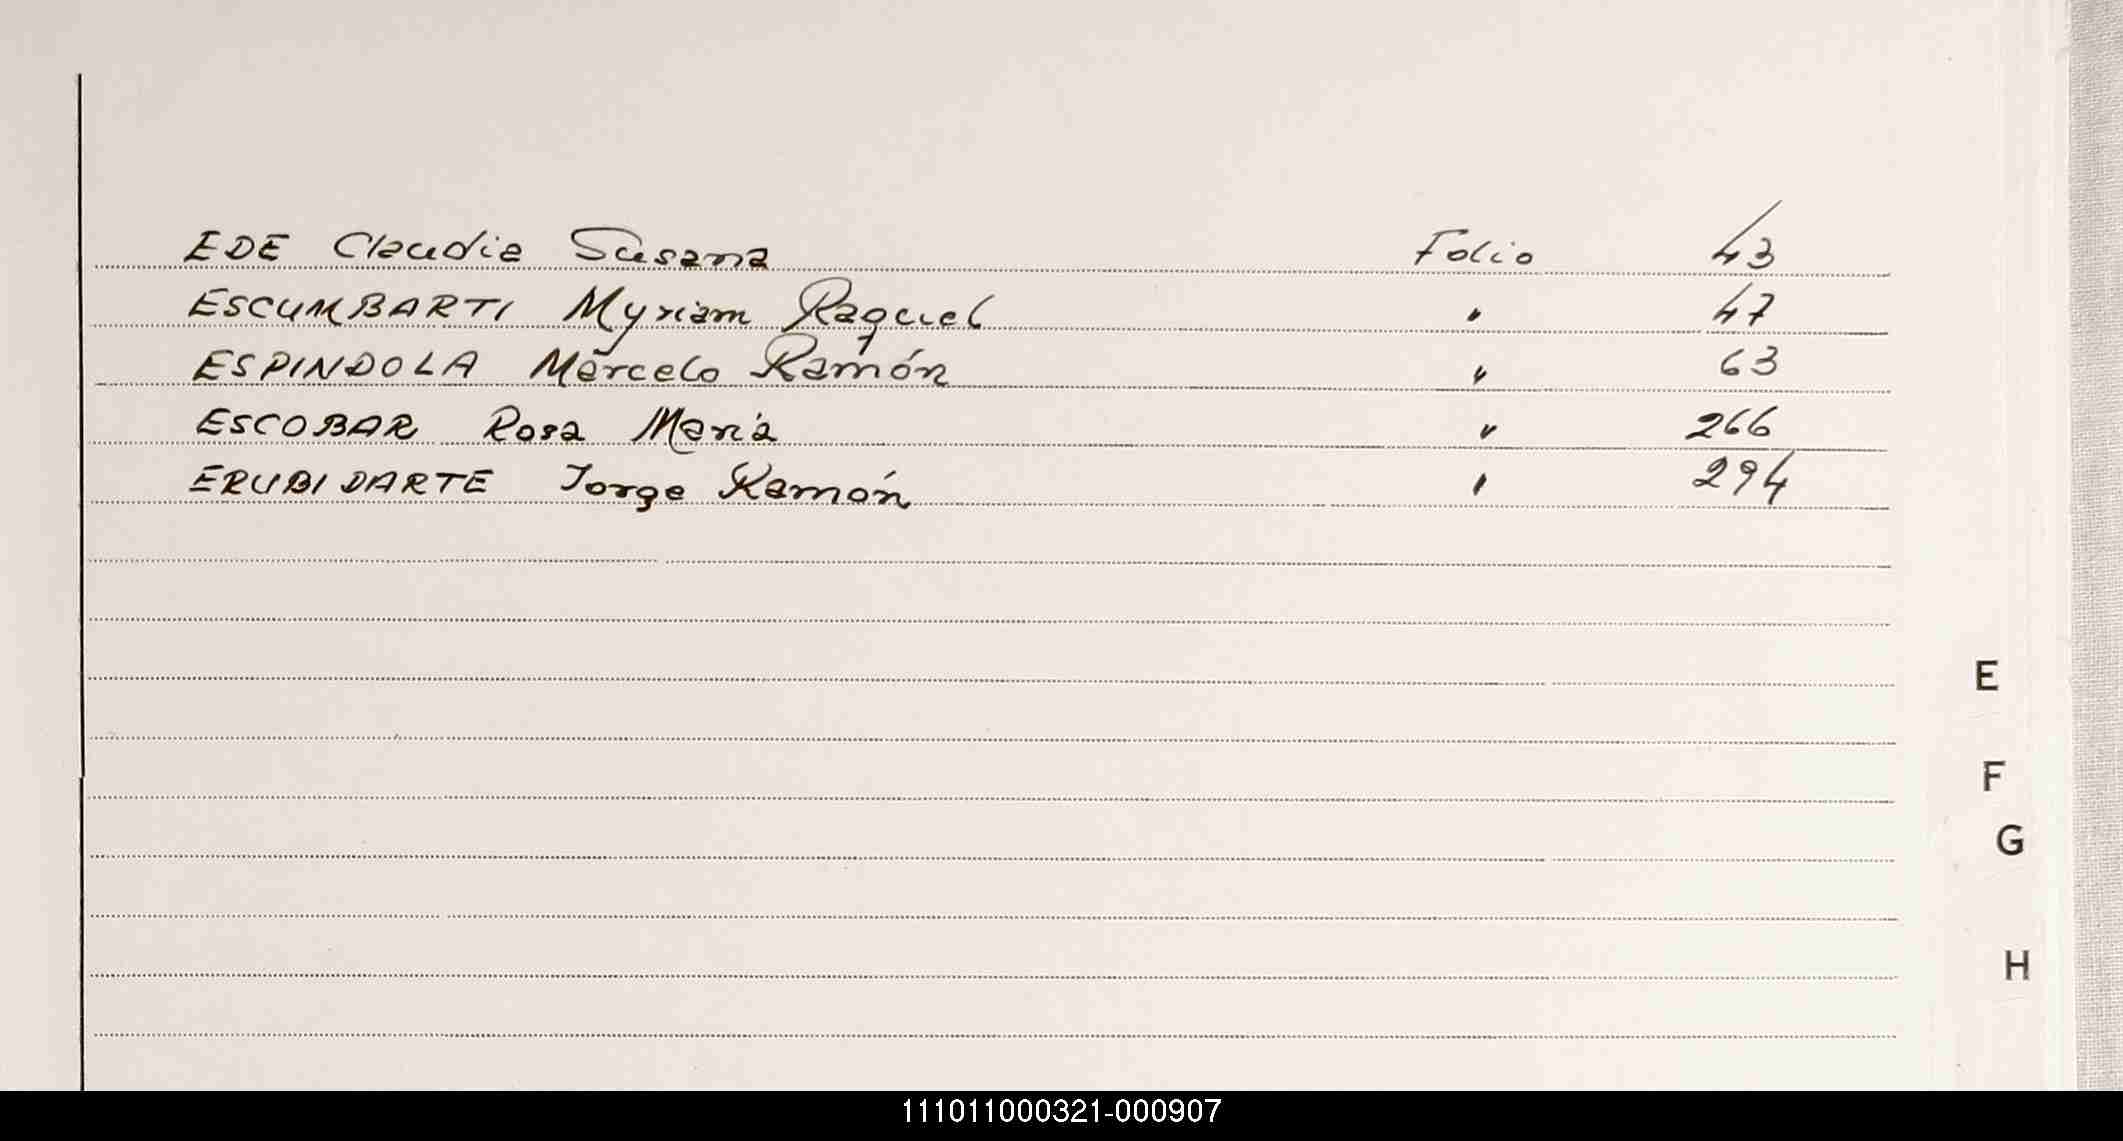 EDE Claudia Susana Folio 43
ESCUMBARTI Myriam Raquel " 47
ESPINDOLA Marcelo Ramón " 63
ESCOBAR Rosa María " 266
ERUBIDARTE Jorge Ramón " 294
E
F
G
H
111011000321-000907